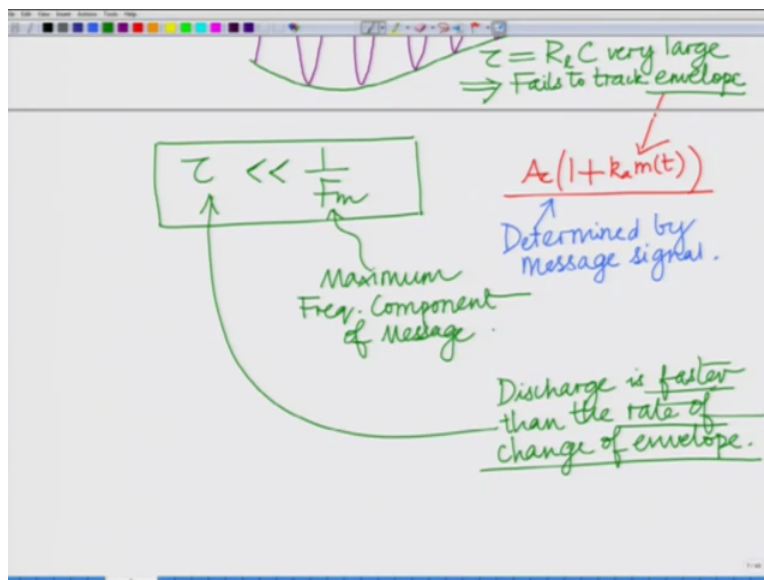 τ = RₗC very large
⇒ Fails to track envelope
τ << 1/Fm
Ac(1+kam(t))
Determined by
Message signal.
Maximum
Freq. Component
of Message.
Discharge is faster
than the rate of
change of envelope.